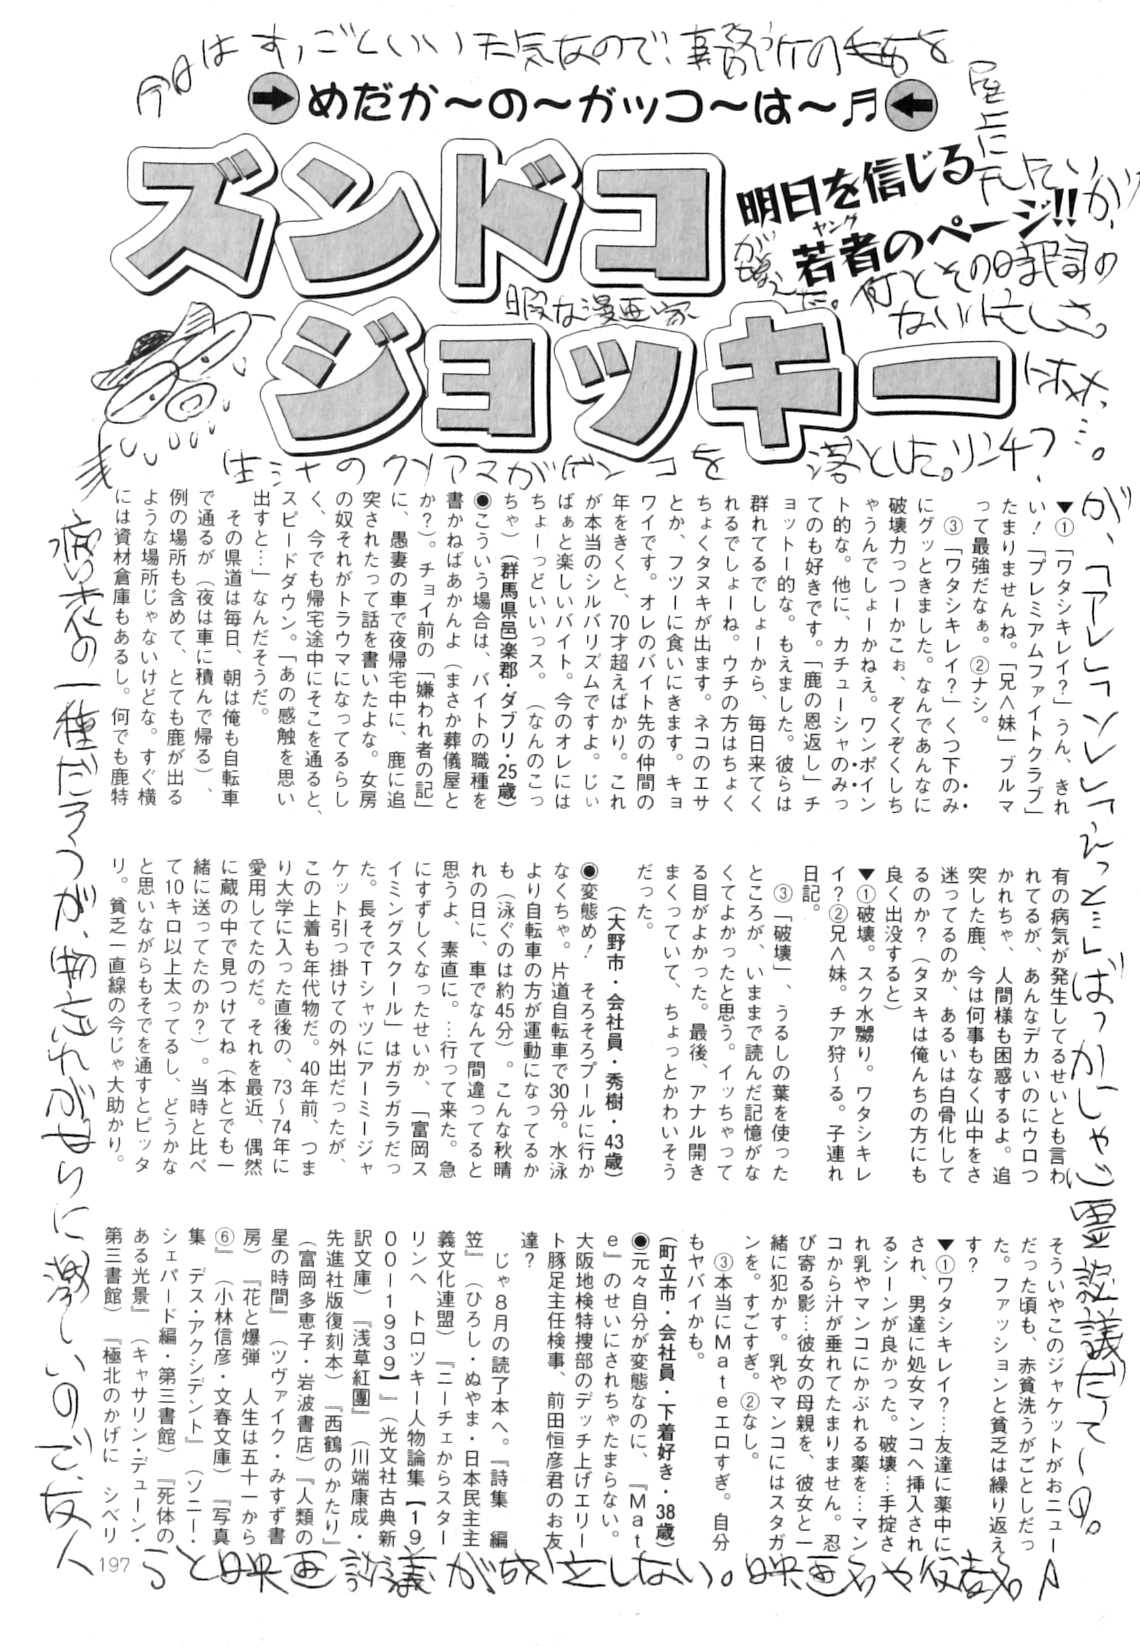 今日はすっごといい天気なので、事務所の
屋上に干していが、
めだか〜の〜ガッコ〜は〜♬
ズンドコ
ジョッキー
明日を信じる
若者のページ!!
ヤング
が増えた。何とその時間の
ない忙しさ。
暇な漫画家
落とした。リンチ?
▼①「ワタシキレイ?」うん、きれ
い!「プレミアムファイトクラブ」
たまりませんね。「兄<妹」ブルマ
って最強だなぁ。②ナシ。
③「ワタシキレイ?」くつ下のみ
にグッときました。なんであんなに
破壊力っつーかこぉ、ぞくぞくしち
ゃうんでしょーかねえ。ワンポイン
ト的な。他に、カチューシャのみっ
てのも好きです。「鹿の恩返し」チ
ョットー的な。もえました。彼らは
群れてるでしょーから、毎日来てく
れるでしょーね。ウチの方はちょく
ちょくタヌキが出ます。ネコのエサ
とか、フツーに食いにきます。キョ
ワイです。オレのバイト先の仲間の
年をきくと、70才超えばかり。これ
が本当のシルバリズムですよ。じぃ
ばぁと楽しいバイト。今のオレには
ちょーっどいいっス。(なんのこっ
ちゃ)(群馬県邑楽郡・ダブリ・25歳)
◉こういう場合は、バイトの職種を
書かねばあかんよ(まさか葬儀屋と
か?)。チョイ前の「嫌われ者の記」
に、愚妻の車で夜帰宅中に、鹿に追
突されたって話を書いたよな。女房
の奴それがトラウマになってるらし
く、今でも帰宅途中にそこを通ると、
スピードダウン。「あの感触を思い
出すと…」なんだそうだ。
その県道は毎日、朝は俺も自転車
で通るが(夜は車に積んで帰る)、
例の場所も含めて、とても鹿が出る
ような場所じゃないけどな。すぐ横
には資材倉庫もあるし。何でも鹿特
有の病気が発生してるせいとも言わ
れてるが、あんなデカいのにウロつ
かれちゃ、人間様も困惑するよ。追
突した鹿、今は何事もなく山中をさ
迷ってるのか、あるいは白骨化して
るのか?(タヌキは俺んちの方にも
良く出没すると)
▼①破壊。スク水嬲り。ワタシキレ
イ?②兄<妹。チア狩〜る。子連れ
日記。
③「破壊」、うるしの葉を使った
ところが、いままで読んだ記憶がな
くてよかったと思う。イッちゃって
る目がよかった。最後、アナル開き
まくっていて、ちょっとかわいそう
だった。
(大野市・会社員・秀樹・43歳)
◉変態め! そろそろプールに行か
なくちゃ。片道自転車で30分。水泳
より自転車の方が運動になってるか
も(泳ぐのは約45分)。こんな秋晴
れの日に、車でなんて間違ってると
思うよ、素直に。…行って来た。急
にすずしくなったせいか、「富岡ス
イミングスクール」はガラガラだっ
た。長そでTシャツにアーミージャ
ケット引っ掛けての外出だったが、
この上着も年代物だ。40年前、つま
り大学に入った直後の、73〜74年に
愛用してたのだ。それを最近、偶然
に蔵の中で見つけてね(本とでも一
緒に送ってたのか?)。当時と比べ
て10キロ以上太ってるし、どうかな
と思いながらもそでを通すとピッタ
リ。貧乏一直線の今じゃ大助かり。
そういやこのジャケットがおニュー
だった頃も、赤貧洗うがごとしだっ
た。ファッションと貧乏は繰り返え
す?
▼①ワタシキレイ?…友達に薬中に
され、男達に処女マンコへ挿入され
るシーンが良かった。破壊…手掟さ
れ乳やマンコにかぶれる薬を…マン
コから汁が垂れてたまりません。忍
び寄る影…彼女の母親を、彼女と一
緒に犯かす。乳やマンコにはスタガ
ンを。すごすぎ。②なし。
③本当にMateエロすぎ。自分
もヤバイかも。
(町立市・会社員・下着好き・38歳)
◉元々自分が変態なのに、『Mat
e』のせいにされちゃたまらない。
大阪地検特捜部のデッチ上げエリー
ト豚足主任検事、前田恒彦君のお友
達?
じゃ8月の読了本へ。『詩集 編
笠』(ひろし・ぬやま・日本民主主
義文化連盟)『ニーチェからスター
リンへ トロツキー人物論集【19
00-1939】』(光文社古典新
訳文庫)『浅草紅團』(川端康成・
先進社版復刻本)『西鶴のかたり』
(富岡多恵子・岩波書店)『人類の
星の時間』(ツヴァイク・みすず書
房)『花と爆弾 人生は五十一から
⑥』(小林信彦・文春文庫)『写真
集 デス・アクシデント』(ソニー・
シェパード編・第三書館)『死体の
ある光景』(キャサリン・デューン・
第三書館)『極北のかげに シベリ
が、「アレ」って「ソレ」って「えっと…」ばっかしじゃ心霊談議だて〜の。
らと映画談議が成立しない。映画名や役者名
病気の一種だろうが、物忘れがやけに激しいのご友人
197